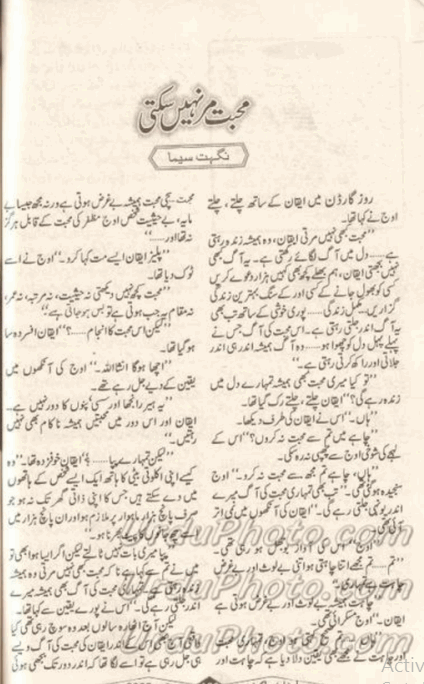 محبت مر نہیں سکتی
نگہت سیما
روز گارڈن میں ایقان کے ساتھ چلتے، چلتے
اوج نے کہا تھا۔
”محبت کبھی نہیں مرتی ایقان، وہ ہمیشہ زندہ رہتی
ہے..... دل میں آگ لگائے رکھتی ہے۔ یہ آگ کبھی
نہیں بجھتی ایقان، ہم بھلے کچھ بھی کہیں ہزار دعوے کریں
کسی کو بھول جانے کے کسی اور کے سنگ بہترین زندگی
گزاریں..... مکمل زندگی..... پوری خوشی کے ساتھ تب بھی
یہ آگ اندر جلتی رہتی ہے۔ اس محبت کی آگ جس نے
پہلے پہل دل کو چھوا ہو..... وہ آگ ہمیشہ اندر ہی اندر
جلاتی اور راکھ کرتی رہتی ہے۔“
”تو کیا میری محبت بھی ہمیشہ تمہارے دل میں
زندہ رہے گی؟“ ایقان چلتے، چلتے رک گیا تھا۔
”ہاں۔“ اس نے ایقان کی طرف دیکھا۔
”چاہے میں تم سے محبت نہ کروں؟“ اس کے
لہجے کی شوخی اوج سے چھپی نہ رہ سکی۔
”ہاں، چاہے تم مجھ سے محبت نہ کرو۔“ اوج
سنجیدہ ہو گئی تھی۔ ”تب بھی تمہاری محبت کی آگ میرے
اندر یونہی جلتی رہے گی۔“ ایقان کی آنکھوں میں نمی اتر
آئی تھی۔
”اوج“ اس کی آواز بوجھل ہو رہی تھی۔
”تم..... تم مجھے اتنا چاہتی ہو اتنی بے لوث اور بے غرض
چاہت ہے تمہاری۔“
”چاہت ہمیشہ بے لوث اور بے غرض ہوتی ہے
ایقان۔“ اوج مسکرائی تھی۔
اور چاہت کے مجھے بھی یقین دلا دیا ہے کہ چاہت اور
محبت۔ سچی محبت ہمیشہ بے غرض ہوتی ہے ورنہ مجھ جیسا بے
مایہ، بے حیثیت شخص اوج مظفر کی محبت کے قابل ہرگز
نہ تھا اور.....“
”پلیز ایقان ایسے مت کہا کرو۔“ اوج نے اسے
ٹوک دیا تھا۔
”محبت کچھ نہیں دیکھتی نہ حیثیت، نہ مرتبہ، نہ عمر،
نہ مقام یہ جب ہوتی ہے تو بس ہو جاتی ہے۔“
”لیکن اس محبت کا انجام.....؟“ ایقان افسردہ سا
ہو گیا تھا۔
”اچھا ہوگا انشاءاللہ۔“ اوج کی آنکھوں میں
یقین کے دیے جل رہے تھے۔
”یہ ہیر رانجھا اور سسی پنوں کا دور نہیں ہے۔
ایقان اور اس دور میں محبتیں ہمیشہ ناکام بھی نہیں
رہتیں۔“
”لیکن تمہارے پپا.....؟“ ایقان خوفزدہ تھا۔ ”وہ
کیسے اپنی اکلوتی بیٹی کا ہاتھ ایک ایسے شخص کے ہاتھوں
میں دے سکتے ہیں جس کا اپنا ذاتی گھر تک نہ ہو جو
صرف پانچ ہزار ماہوار پر ملازم ہو اور ان پانچ ہزار میں
”پپا میری بات نہیں ٹالتے لیکن اگر ایسا ہوا بھی تو
میں نے تم سے کہا ہے نا کہ محبت کبھی نہیں مرتی وہ ہمیشہ
زندہ رہتی ہے۔ تمہاری محبت کی آگ بھی ہمیشہ میرے
اندر جلتی رہے گی۔“ اس نے پورے یقین سے کہا تھا۔
لیکن آج اٹھارہ سالوں بعد وہ سوچ رہی تھی کیا
ہی جل رہی ہے تو اسے لگا تھا کہ اندر دور تک بجھی ہوئی
UrduPhoto.com
UrduPhoto.com
UrduPhoto.com
Activ